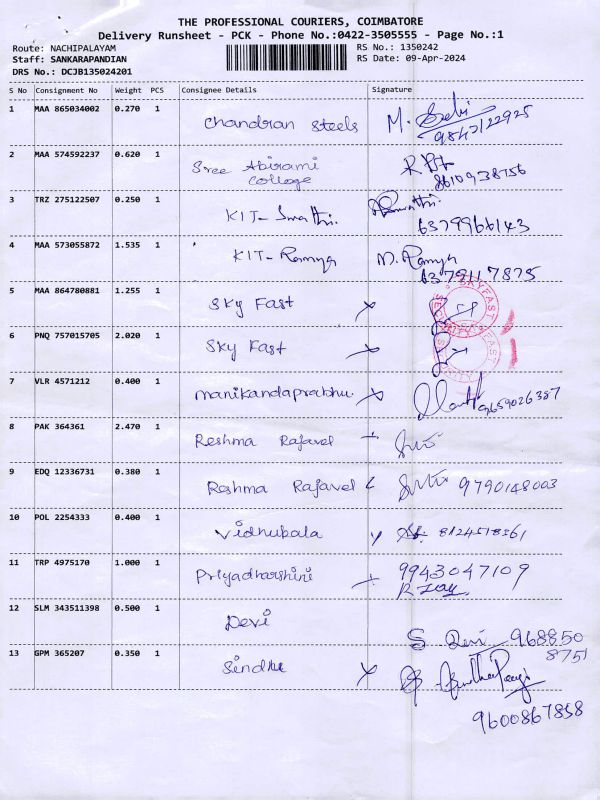 THE PROFESSIONAL COURIERS, COIMBATORE
Delivery Runsheet - PCK - Phone No.:0422-3505555 - Page No.:1
Route: NACHIPALAYAM RS No.: 1350242
Staff: SANKARAPANDIAN RS Date: 09-Apr-2024
DRS No.: DCJB135024201
S No Consignment No Weight PCS Consignee Details Signature
1 MAA 865034002 0.270 1 Chandran Steels M. Selvi
9843122925
2 MAA 574592237 0.620 1 Sree Abirami
College 8610938756
3 TRZ 275122507 0.250 1 KIT- Swathi.
6379966143
4 MAA 573055872 1.535 1 KIT- Ramya M. Ramya
6379117875
5 MAA 864780881 1.255 1 Sky Fast x
SKYFAST SECURITY
6 PNQ 757015705 2.020 1 Sky Fast x
SECURITY
7 VLR 4571212 0.400 1 manikandaprabhu x 9659026387
8 PAK 364361 2.470 1 Reshma Rajavel
9 EDQ 12336731 0.380 1 Reshma Rajavel 9790148003
10 POL 2254333 0.400 1 Vidhubala 8124518361
11 TRP 4975170 1.000 1 Priyadharshini 9943047109
12 SLM 343511398 0.500 1 Devi S Devi 968850
8751
13 GPM 365207 0.350 1 Sindhu x
9600867858